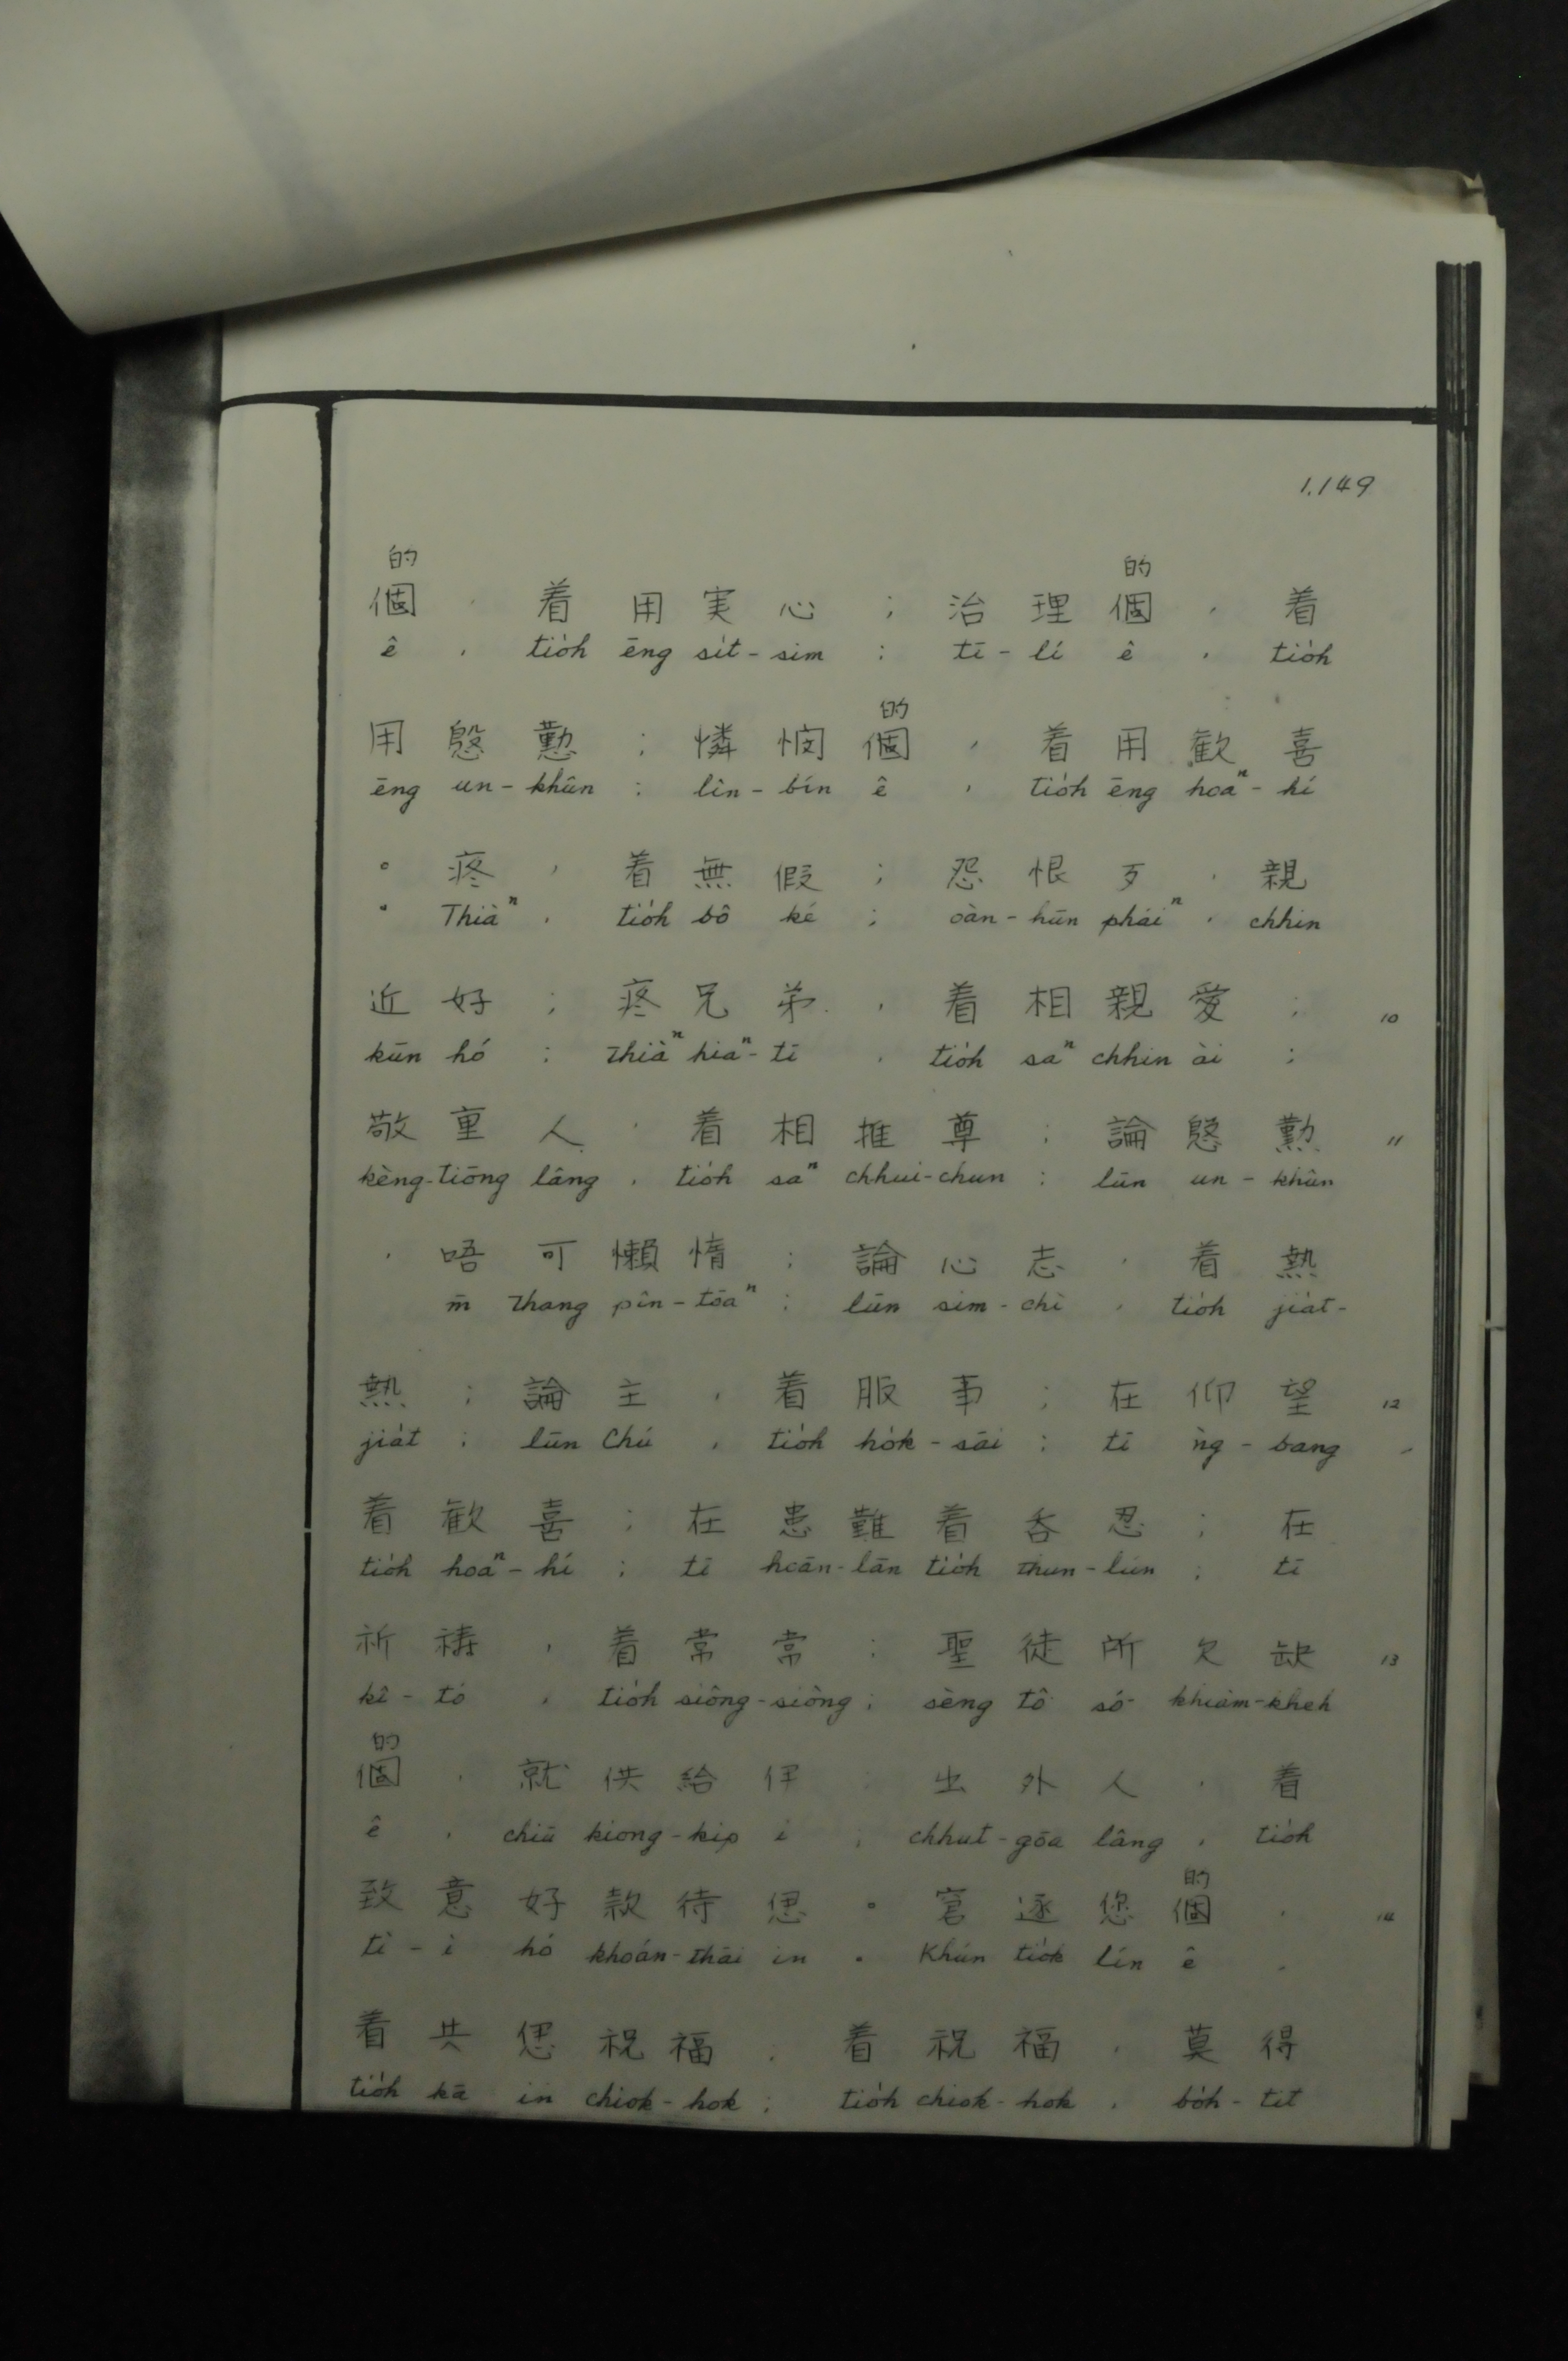 1.149
的 的
個 , 着 用 実 心 ; 治 理 個 , 着
ê , tio̍h ēng si̍t-sim ; tī-lí ê , tio̍h
的
用 慇 懃 ; 憐 憫 個 , 着 用 歓 喜
ēng un-khûn ; lîn-bín ê , tio̍h ēng hoaⁿ-hí
。 疼 , 着 無 假 ; 怨 恨 歹 , 親
. Thiàⁿ , tio̍h bô ké ; oàn-hūn pháiⁿ , chhin
近 好 ; 疼 兄 弟 , 着 相 親 愛 ; 10
kūn hó ; thiàⁿ hiaⁿ-tī , tio̍h saⁿ chhin ài ;
敬 重 人 , 着 相 推 尊 ; 論 慇 懃 11
kèng-tiōng lâng , tio̍h saⁿ chhui-chun ; lūn un-khûn
, 唔 可 懶 惰 ; 論 心 志 , 着 熱
m̄ thang pîn-tōaⁿ ; lūn sim-chì , tio̍h jia̍t-
熱 ; 論 主 , 着 服 事 ; 在 仰 望 12
jia̍t ; lūn Chú , tio̍h ho̍k-sāi ; tī ǹg-bang
着 歓 喜 ; 在 患 難 着 吞 忍 ; 在
tio̍h hoaⁿ-hí ; tī hoān-lān tio̍h thun-lún ; tī
祈 禱 , 着 常 常 ; 聖 徒 所 欠 缺 13
kî-tó , tio̍h siông-siông ; sèng tô͘ só͘ khiàm-kheh
的
個 , 就 供 給 伊 ; 出 外 人 , 着
ê , chiū kiong-kip i ; chhut-gōa lâng , tio̍h
的
致 意 好 款 待 𪜶 。 窘 逐 恁 個 , 14
tì-ì hó khoán-thāi in . Khún tio̍k lín ê ,
着 共 𪜶 祝 福 ; 着 祝 福 , 莫 得
tio̍h kā in chiok-hok ; tio̍h chiok-hok , bo̍h-tit